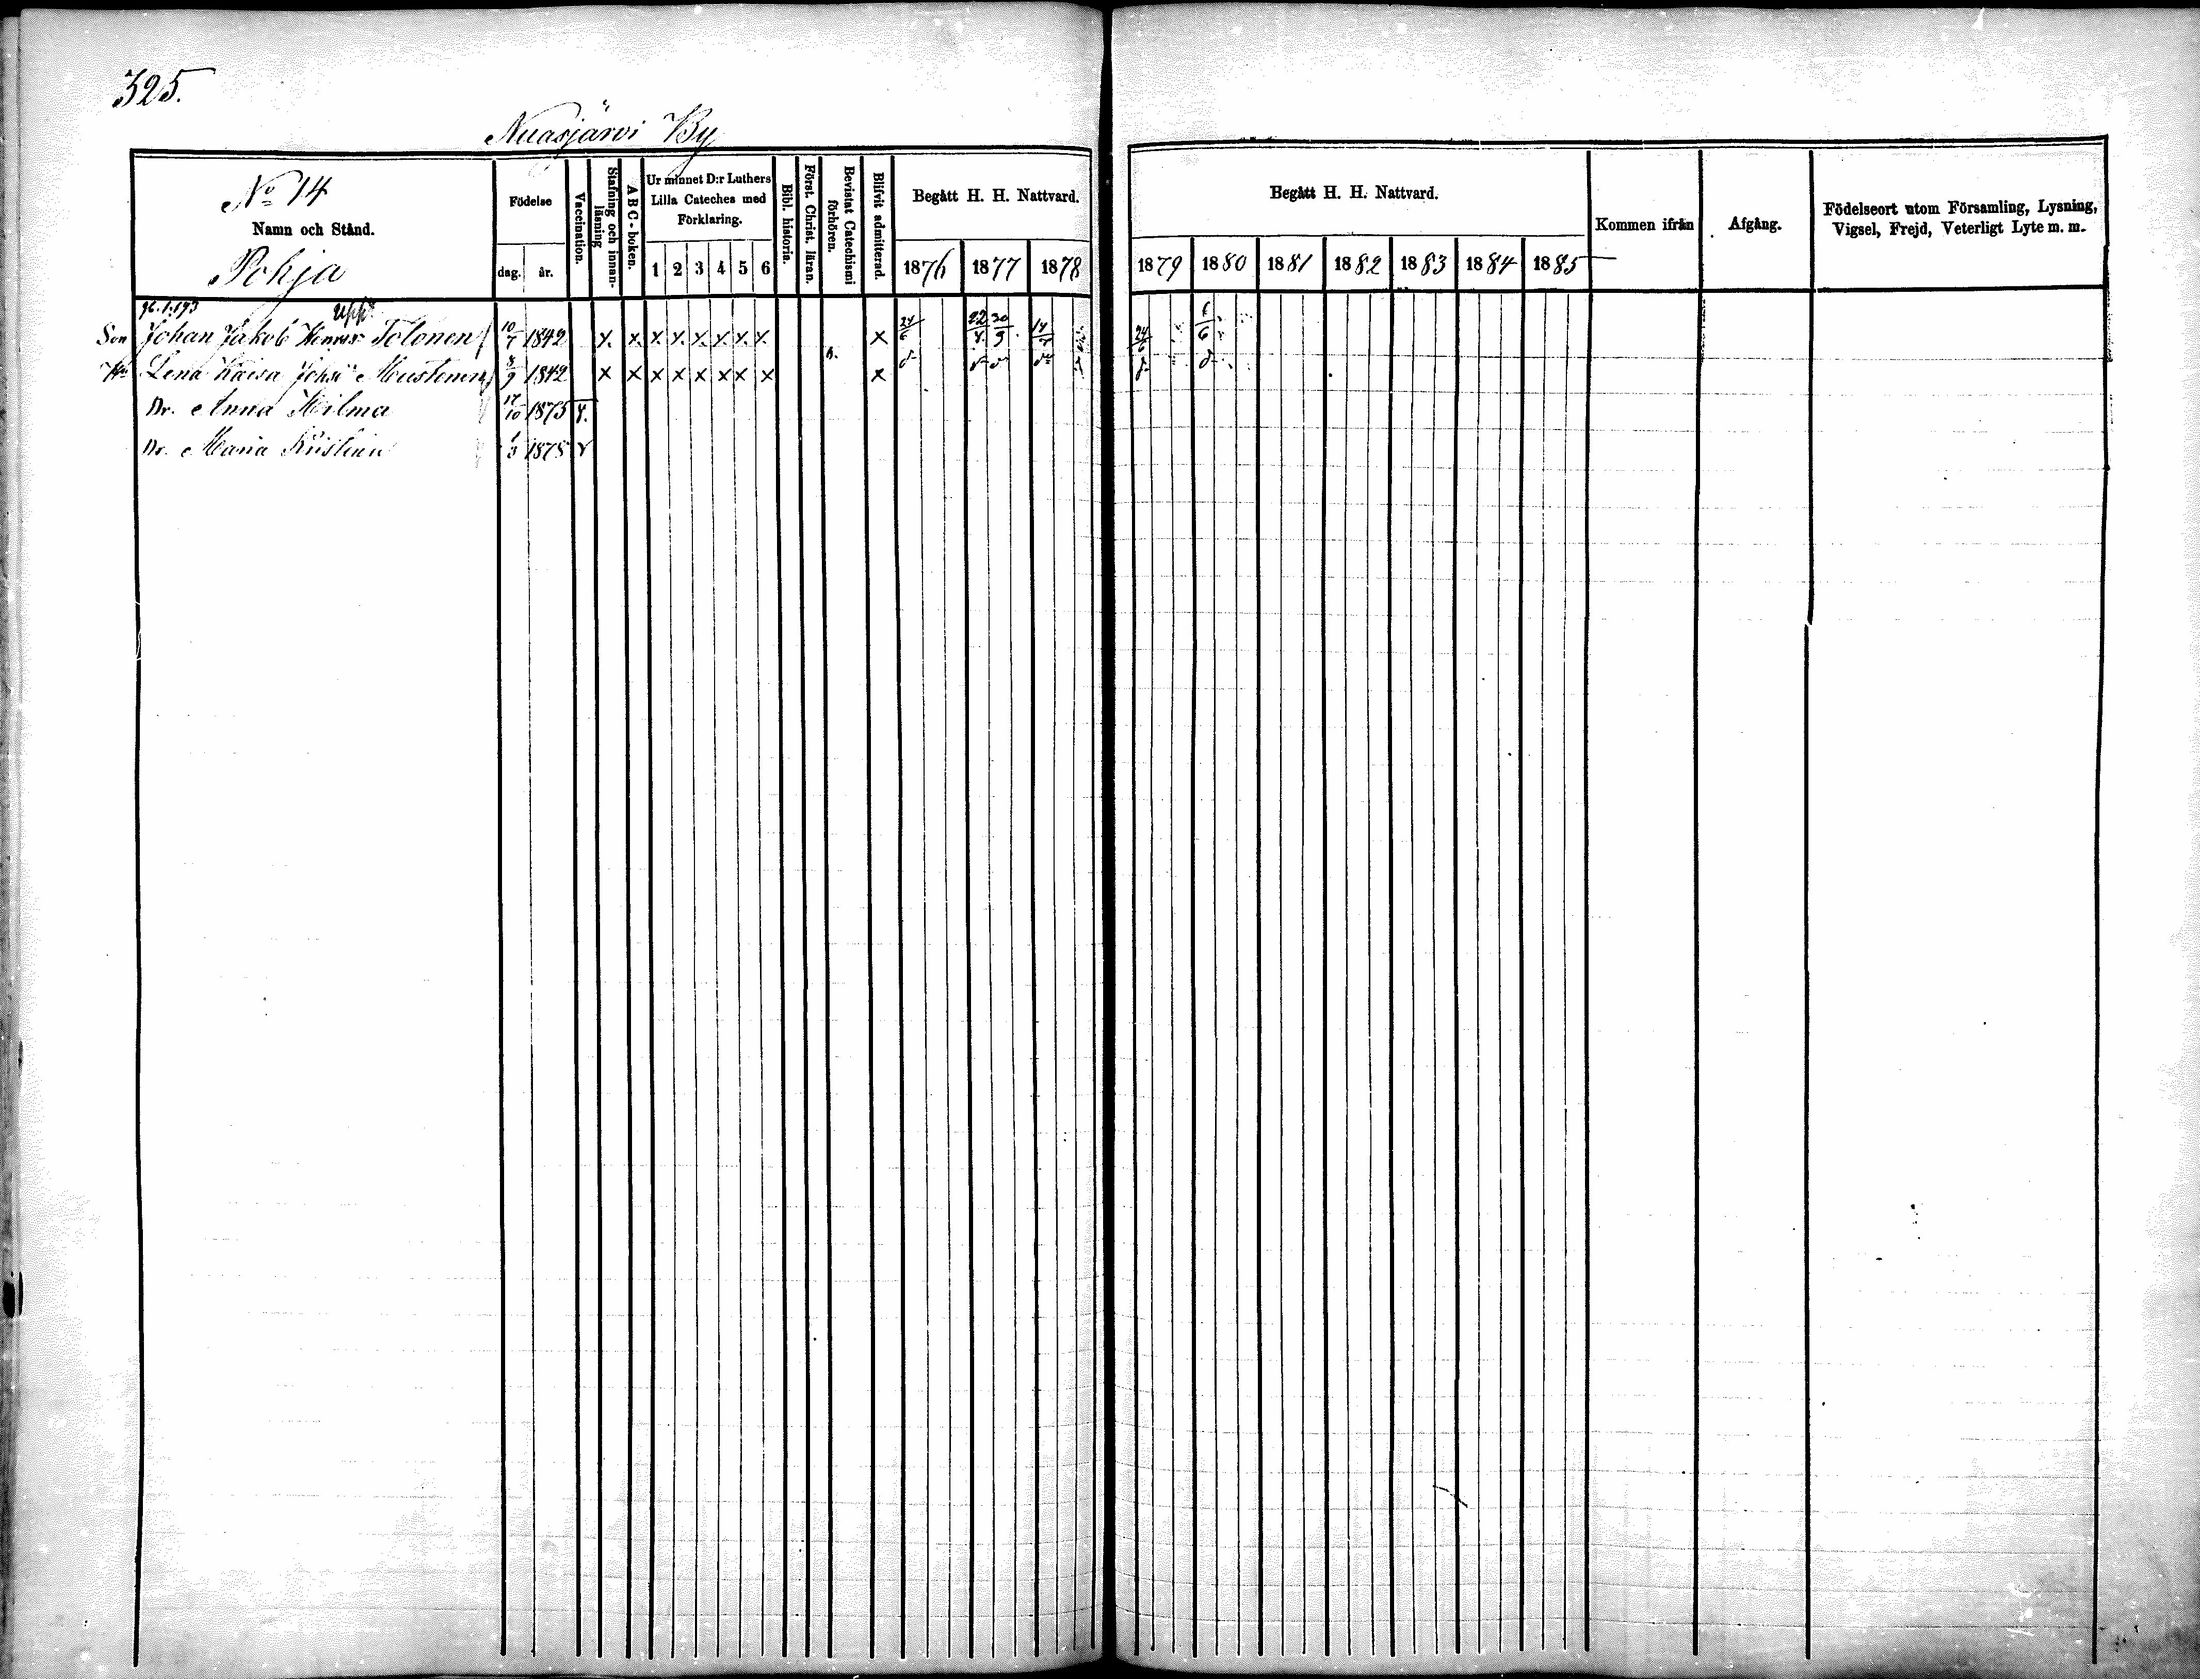 325.
Nuasjärvi By
No 14
Namn och Stånd.
Pohja
Födelse
dag. år.
Vaccination.
Stafning och innan-
läsning
A B C - boken.
Ur minnet D:r Luthers
Lilla Cateches med
Förklaring.
1 2 3 4 5 6
Bibl. historia.
Först. Christ. läran.
Bevistat Catechismi
förhören.
Blifvit admitterad.
Begått H. H. Nattvard.
1876 1877 1878
Begått H. H. Nattvard.
1879 1880 1881 1882 1883 1884 1885
Kommen ifrån
Afgång.
Födelseort utom Församling, Lysning,
Vigsel, Frejd, Veterligt Lyte m. m.
Son Johan Jakob Tolonen 10/7 1842 x. x. x x. x. x. x. x. x 24/6 22/4 30/9 24/6 6
Lena Kaisa Johsr Mustonen 8/9 1842 x x x x x x x x x
Dr. Anna Hilma 17/10 1875
Dr. Maria Kristina 1/3 1878